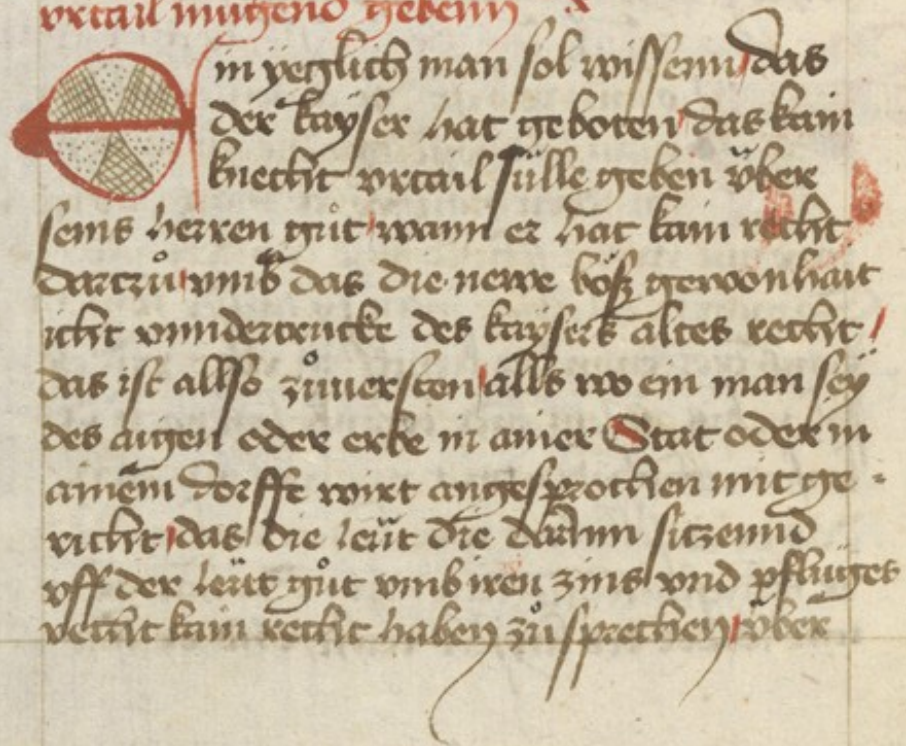 vrtail mugend gebenn
Ein yeglich man sol wissenn / das
der kayser hat geboten / das kain
knecht vrtail sülle geben v̈ber
seins herren gůt / wann er hat kain recht
dartzů / vmb das die newe böß gewonhait
icht vnndertrucke des kaysers altes recht /
das ist allso zůuersteen / alls wo ein man seÿ
des aigen oder erbe in ainer Stat oder in
ainem dorffe wirt angesprochen mit ge-
richt / das die leüt die darinn sitzennd
vff der leüt gůt vmb iren zins vnd pfluges
recht kain recht haben zů sprechen / v̈ber